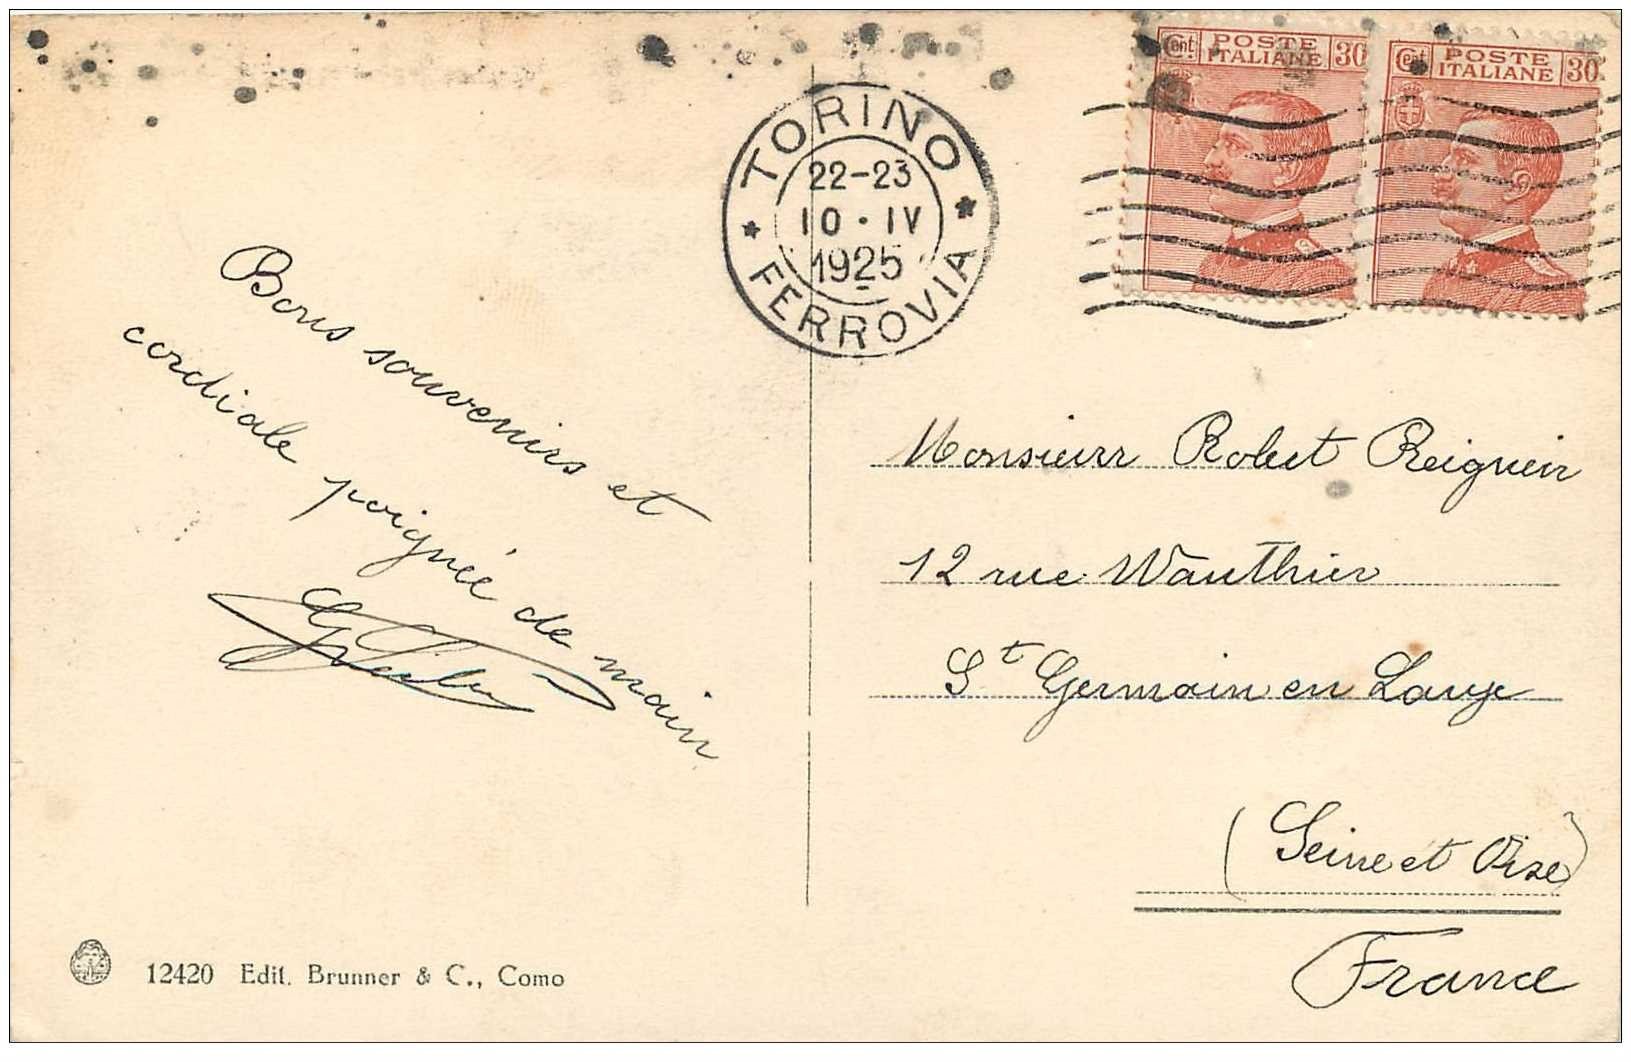 Cent POSTE ITALIANE 30
Cent POSTE ITALIANE 30
TORINO
22-23
10·IV
1925
FERROVIA
Bons souvenirs et
cordiale poignée de main
Monsieur Robert
12 rue Wauthier
St Germain en Laye
(Seine et Oise)
France
12420 Edit. Brunner & C., Como